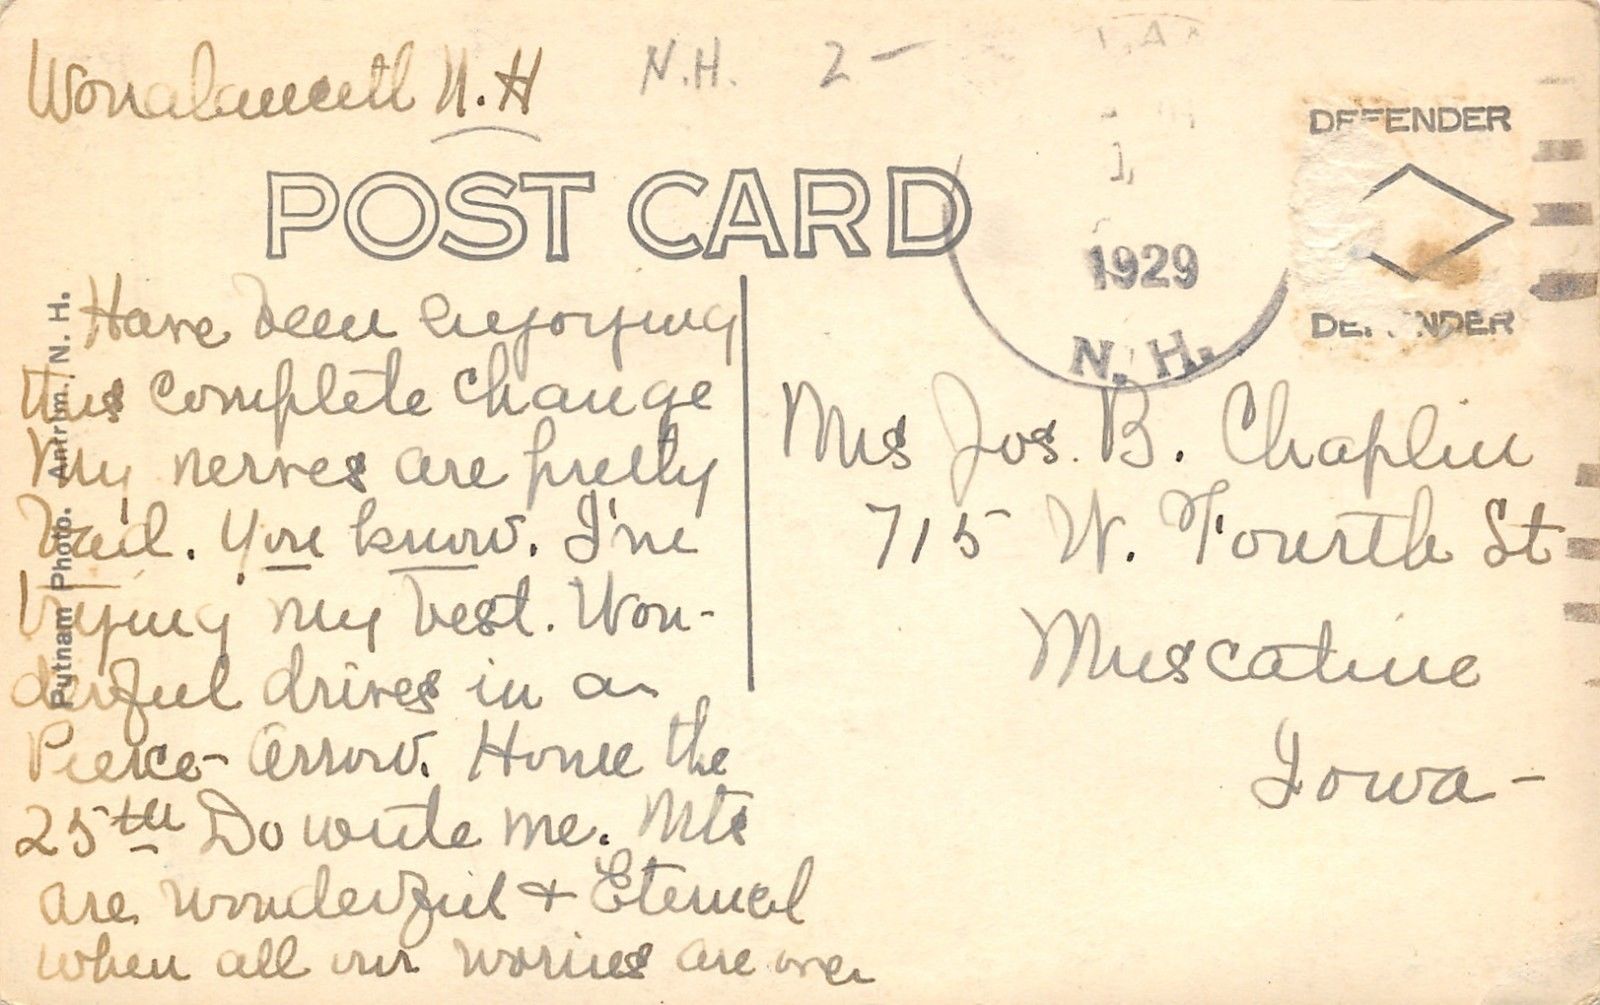 Wonalancett N.H
N.H. 2-
POST CARD
DEFENDER
DEFENDER
1929
N. H.
Putnam Photo. Antrim, N. H.
Have been enjoying
this complete change
My nerves are pretty
bad. You know. I'm
trying my best. Won-
derful drives in a
Pierce-Arrow. Home the
25th Do write me. Mts
are wonderful + Eternal
when all our worries are over
Mrs Jos. B. Chaplin
715 W. Fourth St
Muscatine
Iowa-